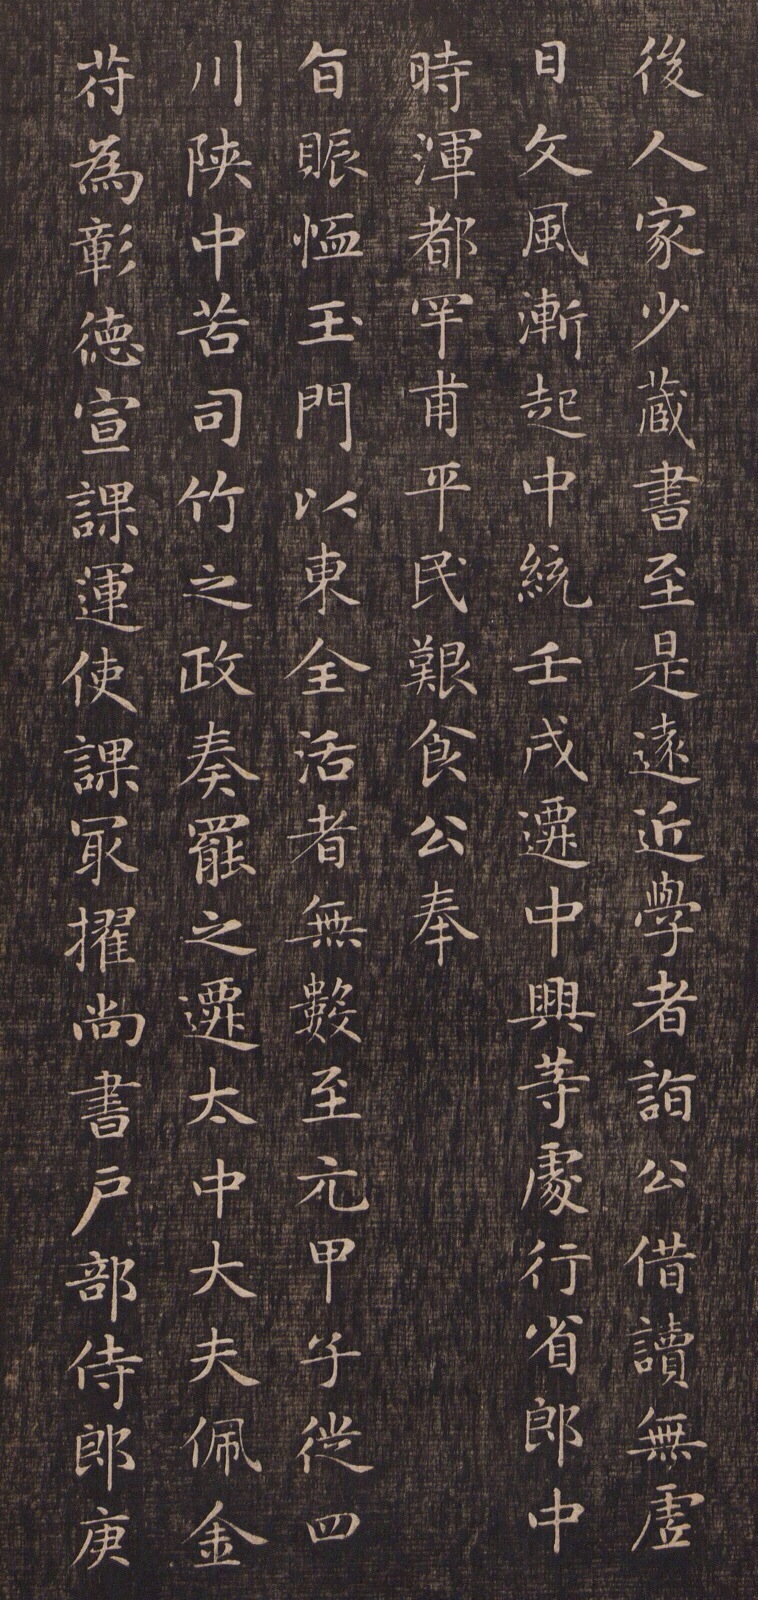 後人家少蔵書至是遠近學者詣公借讀無虗
日文風漸起中統壬戌遷中興等處行省郎中
時渾都罕甫平民艱食公奉
旨賑恤玉門以東全活者無數至元甲子從四
川陝中苦司竹之政奏罷之遷太中大夫佩金
符為彰德宣課運使課冣擢尚書户部侍郎庚